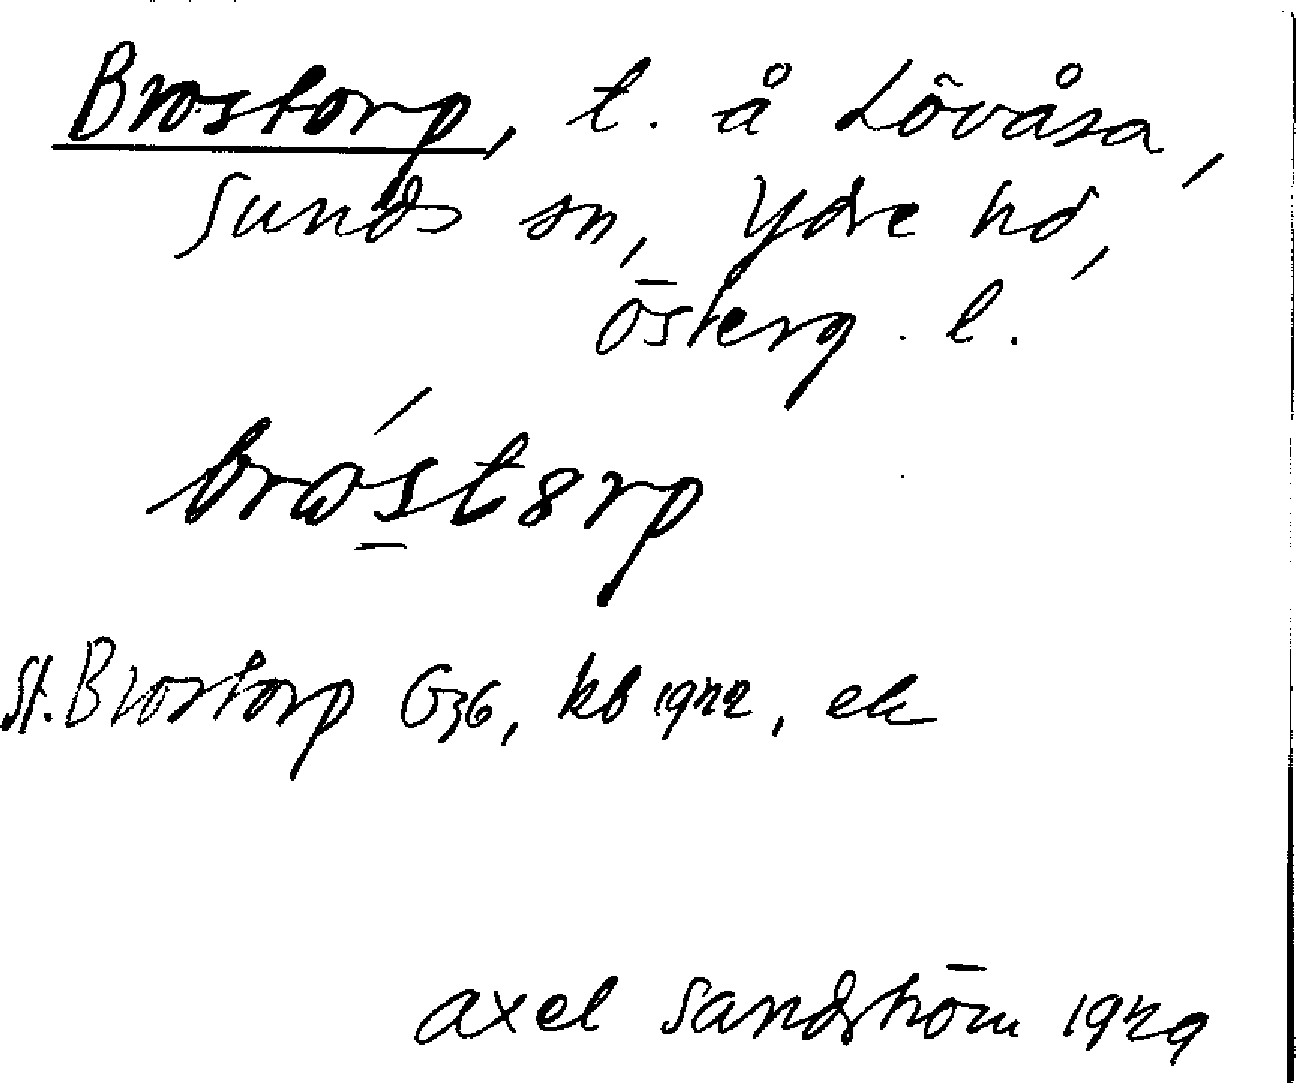 Brostorp, t. å Lövåsa,
Sunds sn, Ydre hd,
Österg. l.
St. Brostorp G36, kb 1922, ek
Axel Sandström 1929